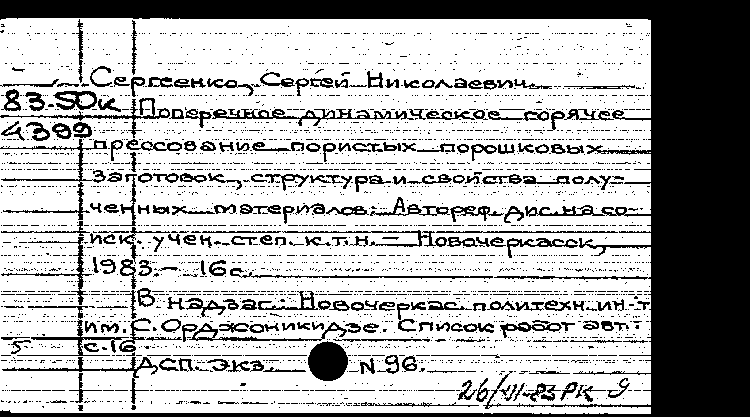 Сергеенко, Сергей Николаевич.
83-50к Поперечное динамическое горячее
4399 прессование пористых порошковых
заготовок, структура и свойства полу-
ченных материалов: Автореф. дис. на со-
иск. учен. степ. к.т.н. – Новочеркасск,
1983. – 16с.
В надзаг.: Новочеркас. политехн. ин-т
им. С. Орджоникидзе. Список работ авт.:
с.16.
ДСП. Экз. N 96.